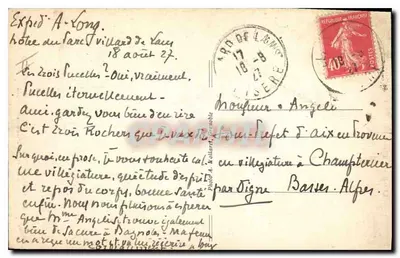 Expéd. A. Long,
Hôtel du Parc Villard de Lans
18 août 27.
Les Trois Pucelles? Oui, vraiment,
Pucelles éternellement –
Ami, gardez vous bien d'en rire
C'est trois Rochers que je
Sur quoi, en prose, je vous souhaite
une villégiature, quiétude d'esprit
et repos du corps, bonne santé
enfin. Nous nous plaisons à espérer
que Mme Angeli se trouve également
bien de sa cure à Bagnols. Ma femme
VILLARD-DE-LANS
17
18-8
27
ISERE
40
Monsieur Angeli
Sous Préfet d'Aix en Provence
en villégiature à Champtercier
par Digne Basses-Alpes.